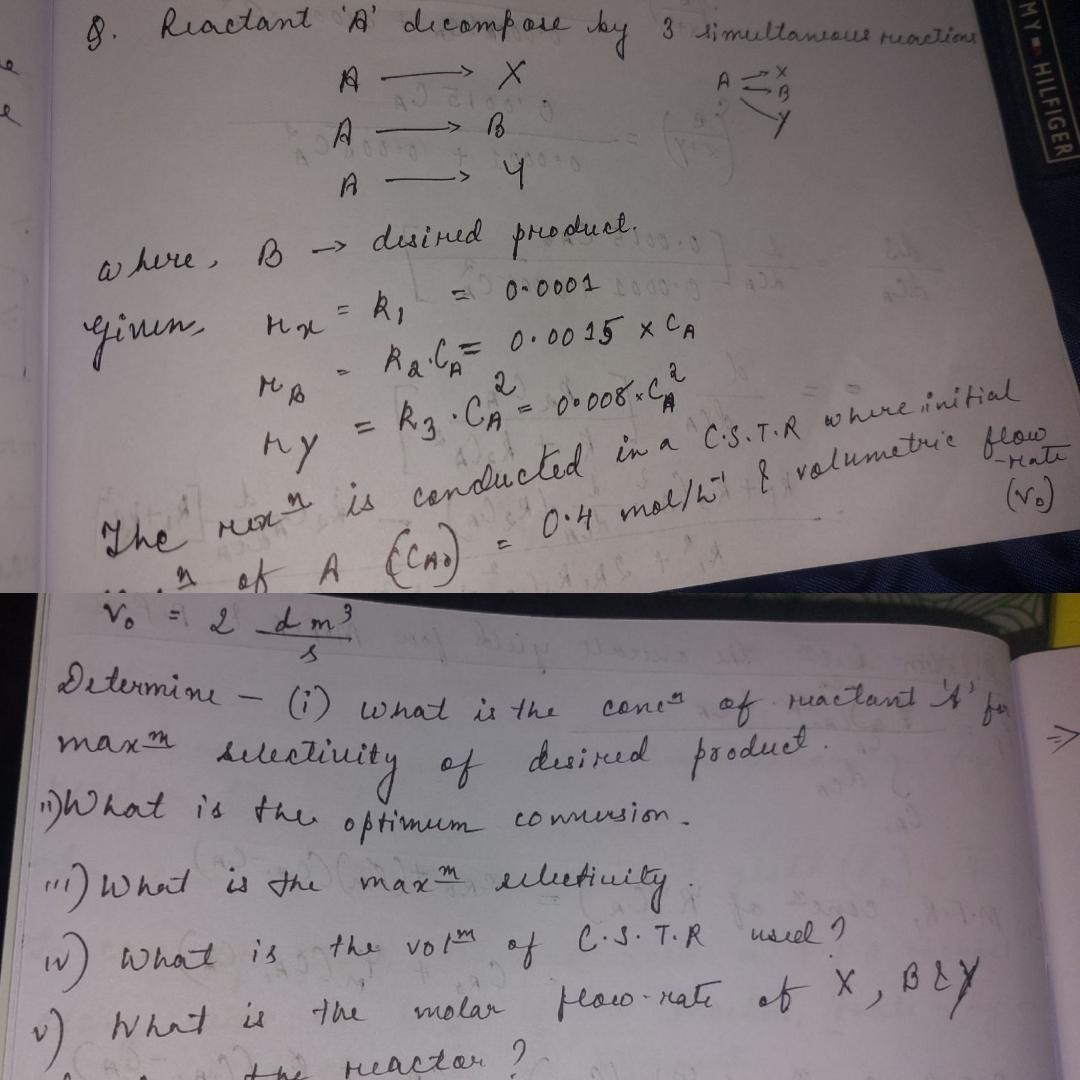 Q. Reactant 'A' decompose by 3 simultaneous reactions
A → X
A → B
A → Y
A → X
→ B
Y
where, B → desired product.
Given, rx = k1 = 0.0001
rB = k2.CA = 0.0015 × CA
rY = k3.CA² = 0.008 × CA²
The rexⁿ is conducted in a C.S.T.R where initial
ⁿ of A (CA0) = 0.4 mol/lit⁻¹ & volumetric flow
-rate
(v0)
MY HILFIGER
V0 = 2 dm³/s
Determine – (i) What is the concⁿ of reactant 'A' for
maxᵐ selectivity of desired product.
ii) What is the optimum conversion.
iii) What is the maxᵐ selectivity.
iv) What is the volᵐ of C.S.T.R used?
v) What is the molar flow-rate of X, B & Y
the reactor?